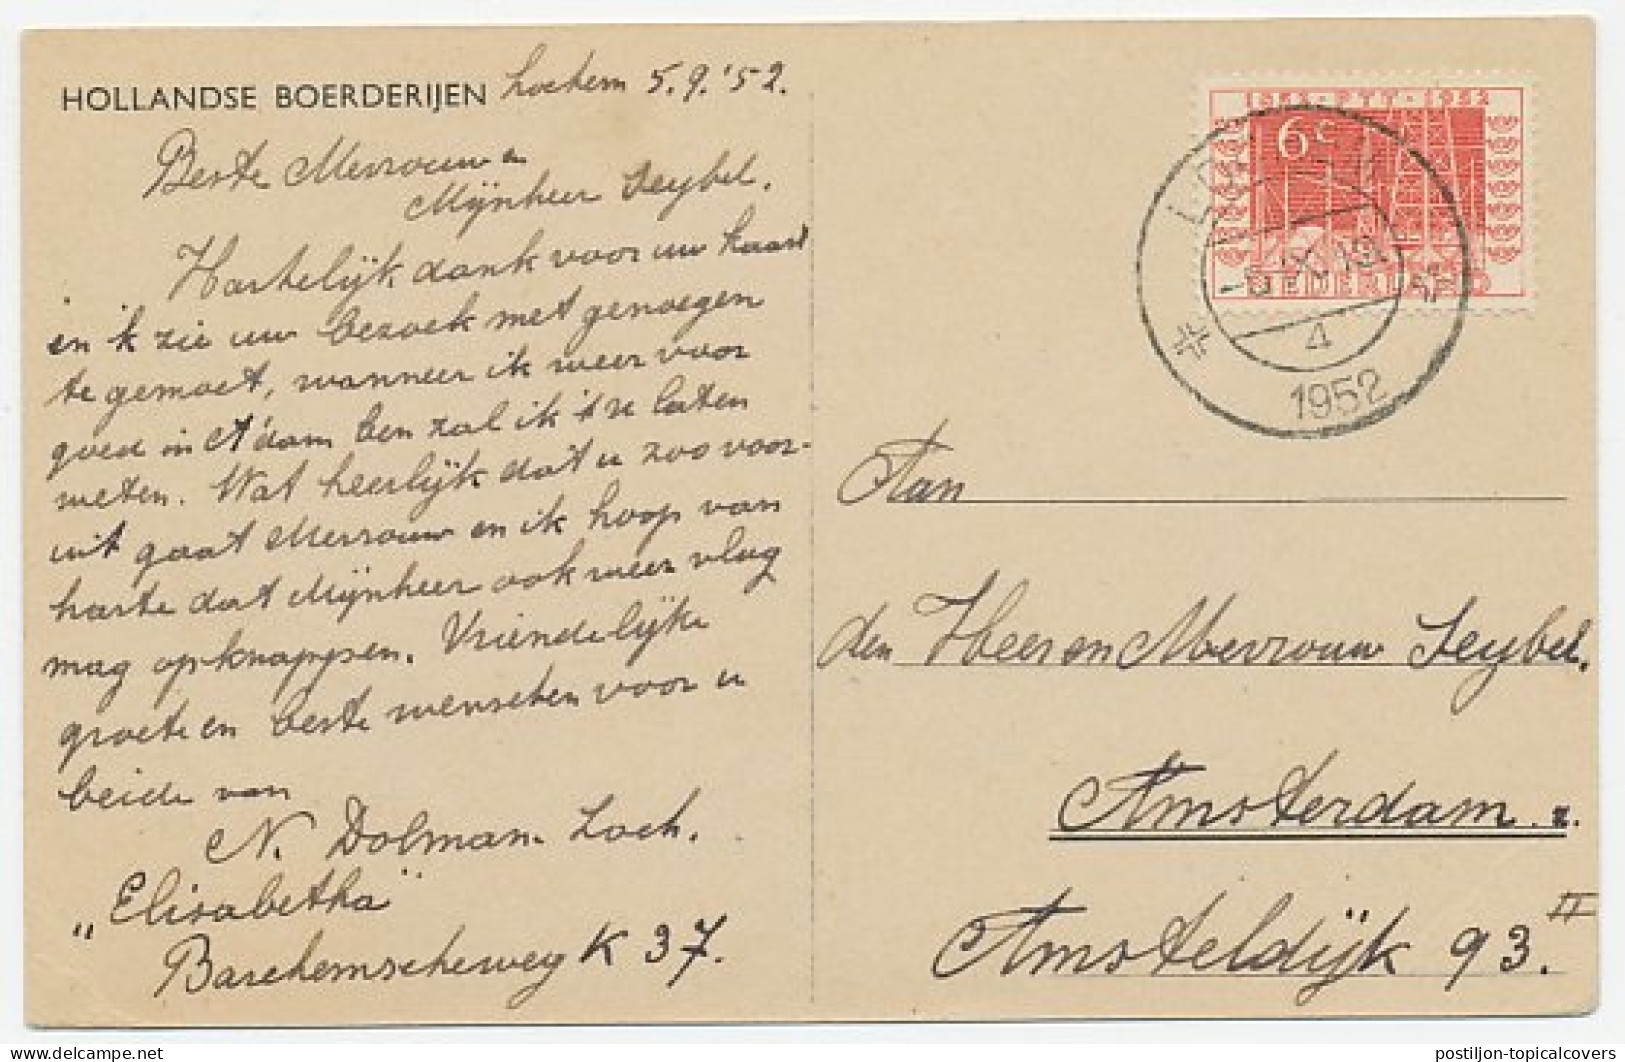 HOLLANDSE BOERDERIJEN Lochem 5.9.'52.
Beste Mevrouw en
Mijnheer Seybel.
Hartelijk dank voor uw kaart
en ik zie uw bezoek met genoegen
te gemoet, wanneer ik weer voor
goed in A'dam ben zal ik 't U laten
weten. Wat heerlijk dat u zoo voor-
uit gaat Mevrouw en ik hoop van
harte dat Mijnheer ook weer vlug
mag opknappen. Vriendelijke
groeten en beste wenschen voor u
beide van
N. Dolman. Loch.
„Elisabetha"
Barchemscheweg K 37.
1852 · PTT · 1952
6 c
NEDERLAND
4
1952
Aan
den Heer en Mevrouw Seybel.
Amsterdam. z.
Amsteldijk 93 II.
www.delcampe.net
postiljon-topicalcovers